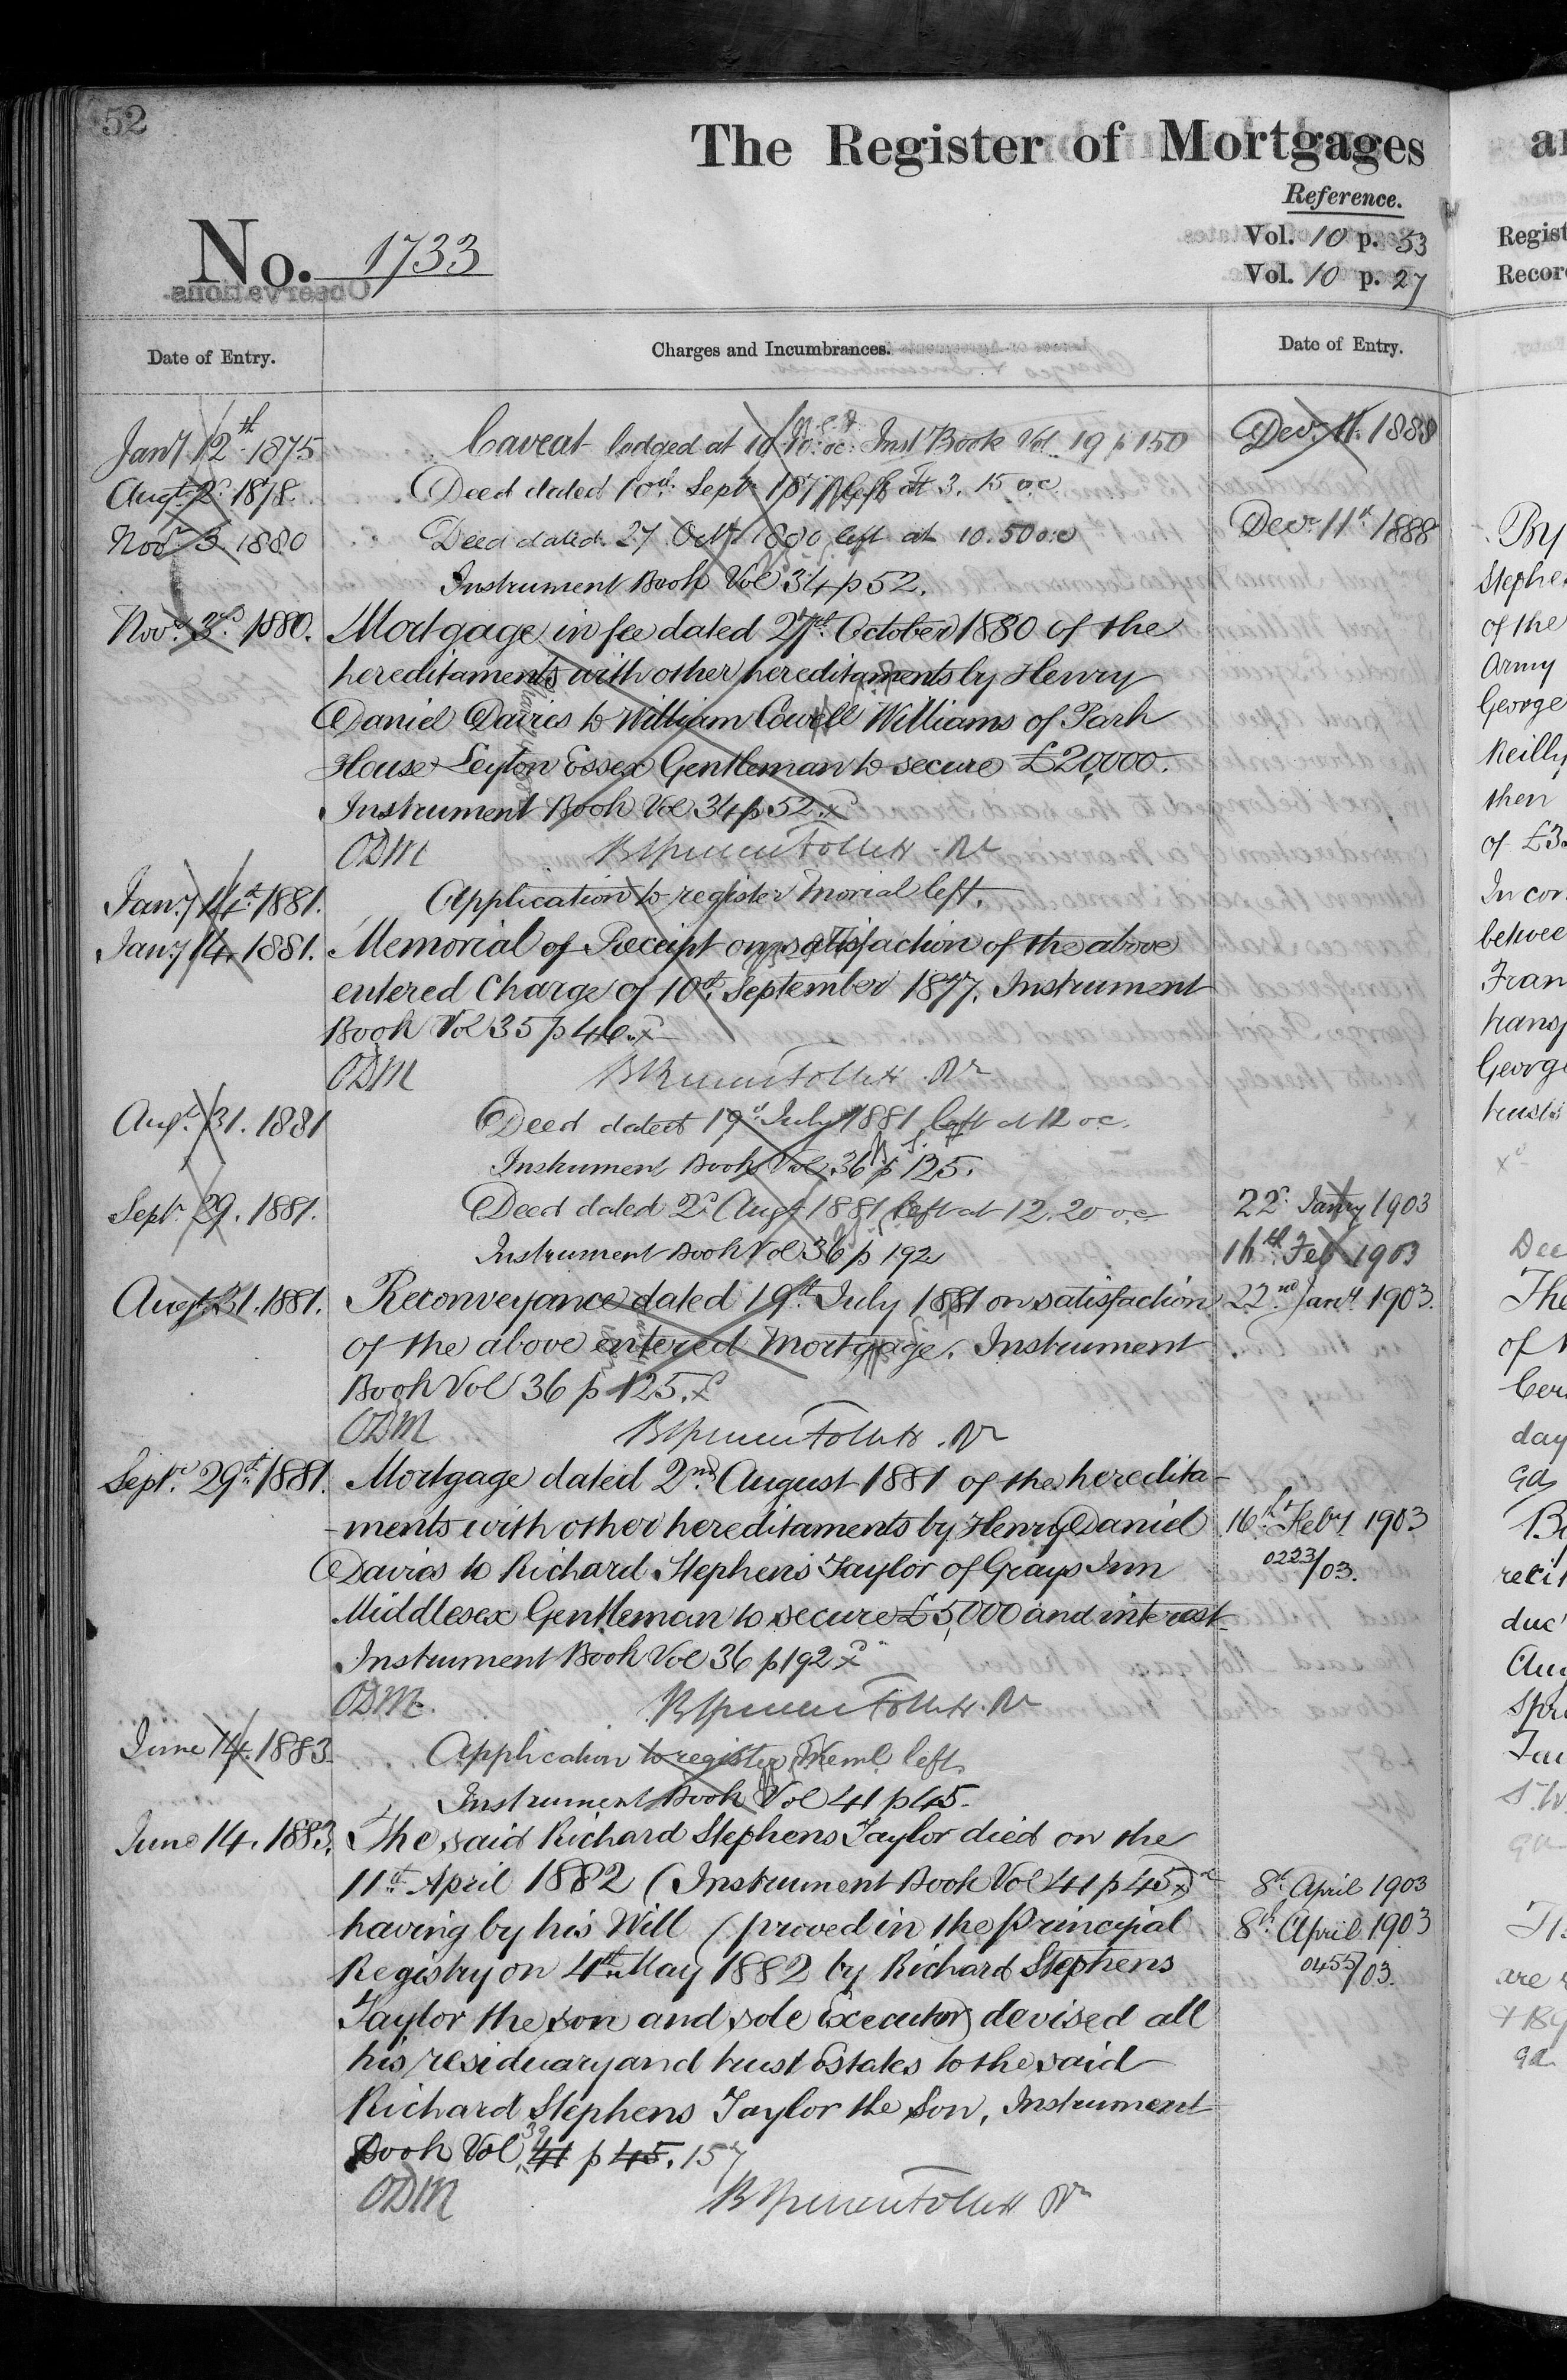 52
The Register of Mortgages
Reference.
No. 1733
Vol. 10 p. 53
Vol. 10 p. 27
Date of Entry.
Charges and Incumbrances.
Date of Entry.
Jany 12th 1875
Caveat lodged at 10 oc: Inst Book Vol. 19 p 150
Decr 11. 1888
Augt 2d 1878.
Deed dated 10th Septr 1877 left at 3. 15 o.c.
Novr 3. 1880
Deed dated 27 Octr 1880 left at 10.50 o.c
Decr 11th 1888
Instrument Book Vol 34 p 52.
Novr 3rd 1880.
Mortgage in fee dated 27th October 1880 of the
hereditaments with other hereditaments by Henry
Daniel Davies to William Cowell Williams of Park
House Leyton Essex Gentleman to secure £20,000.
Instrument Book Vol 34 p 52.
ODM
Jany 14th 1881.
Application to register Morial left.
Jany 14. 1881.
Memorial of Receipt on satisfaction of the above
entered Charge of 10th September 1877. Instrument
Book Vol 35 p 46.
ODM
Augt 31. 1881
Deed dated 19th July 1881 left at 12 o.c.
Instrument Book Vol. 36 p 125.
Septr 29. 1881.
Deed dated 2d Augt 1881 left at 12. 20 o.c
22d Jany 1903
Instrument Book Vol 36 p 192
16th Feb 1903
Augt 31. 1881.
Reconveyance dated 19th July 1881 on satisfaction
22nd Jany 1903.
of the above entered Mortgage. Instrument
Book Vol 36 p 125.
ODM
Septr 29th 1881.
Mortgage dated 2nd August 1881 of the heredita-
-ments with other hereditaments by Henry Daniel
16th Feby 1903
Davies to Richard Stephens Taylor of Grays Inn
0223/03.
Middlesex Gentleman to secure £5,000 and interest
Instrument Book Vol 36 p 192
ODM.
June 14. 1883.
Application to register Meml left
Instrument Book Vol 41 p 45.
June 14. 1883.
The said Richard Stephens Taylor died on the
11th April 1882 (Instrument Book Vol 41 p 45)
8th April 1903
having by his Will (proved in the Principal
8th April 1903
Registry on 4th May 1882 by Richard Stephens
0455/03.
Taylor the son and sole Executor) devised all
his residuary and trust Estates to the said
Richard Stephens Taylor the Son, Instrument
Book Vol 39 41 p 45. 157
ODM